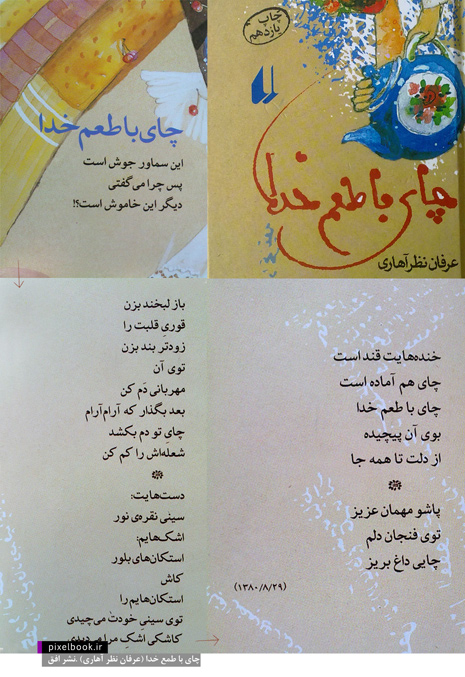 چاپ
یازدهم
چای با طعم خدا
عرفان نظرآهاری
چای با طعم خدا
این سماور جوش است
پس چرا می‌گفتی
دیگر این خاموش است؟!
باز لبخند بزن
قوریِ قلبت را
زودتر بند بزن
توی آن
مهربانی دَم کن
بعد بگذار که آرام‌آرام
چایِ تو دم بکشد
شعله‌اش را کم کن
دست‌هایت:
سینی نقره‌ی نور
اشک‌هایم:
استکان‌های بلور
کاش
استکان‌هایم را
توی سینیِ خودت می‌چیدی
کاشکی اشکِ مرا می‌دیدی
خنده‌هایت قند است
چای هم آماده است
چای با طعم خدا
بوی آن پیچیده
از دلت تا همه جا
پاشو مهمان عزیز
توی فنجان دلم
چایی داغ بریز
(۱۳۸۰/۸/۲۹)
pixelbook.ir
چای با طمع خدا (عرفان نظر آهاری) .نشر افق